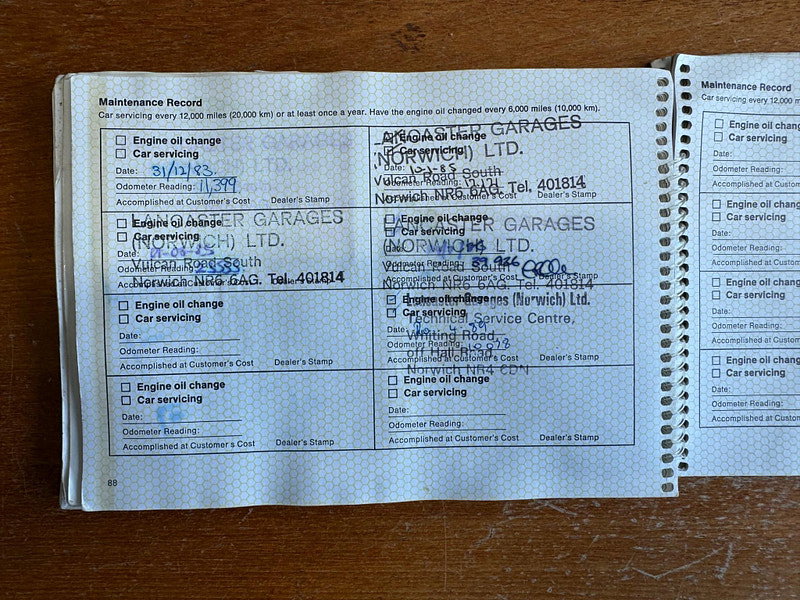 Maintenance Record
Car servicing every 12,000 miles (20,000 km) or at least once a year. Have the engine oil changed every 6,000 miles (10,000 km).
Engine oil change
Car servicing
Date: 31/12/83.
Odometer Reading: 11,399
Accomplished at Customer's Cost Dealer's Stamp
Engine oil change
Car servicing
Date:
Odometer Reading:
Accomplished at Customer's Cost Dealer's Stamp
LANCASTER GARAGES
(NORWICH) LTD.
Vulcan Road South
Norwich NR6 6AG. Tel. 401814
Engine oil change
Car servicing
Date:
Odometer Reading:
Accomplished at Customer's Cost Dealer's Stamp
LANCASTER GARAGES
(NORWICH) LTD.
Vulcan Road South
Norwich NR6 6AG. Tel. 401814
Engine oil change
Car servicing
Date:
Odometer Reading:
Accomplished at Customer's Cost Dealer's Stamp
LANCASTER GARAGES
(NORWICH) LTD.
Vulcan Road South
Norwich NR6 6AG. Tel. 401814
Engine oil change
Car servicing
Date:
Odometer Reading:
Accomplished at Customer's Cost Dealer's Stamp
Engine oil change
Car servicing
Date:
Odometer Reading:
Accomplished at Customer's Cost Dealer's Stamp
Lancaster Garages (Norwich) Ltd.
Technical Service Centre,
Whiting Road,
off Hall Road,
Norwich NR4
Engine oil change
Car servicing
Date:
Odometer Reading:
Accomplished at Customer's Cost Dealer's Stamp
Engine oil change
Car servicing
Date:
Odometer Reading:
Accomplished at Customer's Cost Dealer's Stamp
88
Maintenance Record
Car servicing every 12,000
Engine oil
Car servicing
Date:
Odometer Reading:
Accomplished at
Engine oil
Car servicing
Date:
Odometer Reading:
Accomplished at
Engine oil
Car servicing
Date:
Odometer Reading:
Accomplished at
Engine oil
Car servicing
Date:
Odometer Reading:
Accomplished at